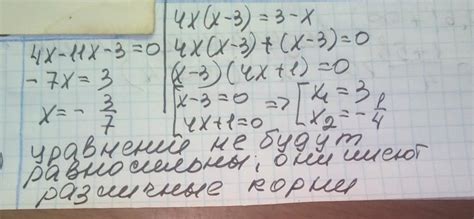 4x-11x-3=0
-7x=3
x=-3/7
4x(x-3)=3-x
4x(x-3)+(x-3)=0
(x-3)(4x+1)=0
[x-3=0 4x+1=0 => [x₁=3 x₂=-1/4
уравнений не будут
равносильны, они имеют
различные корни